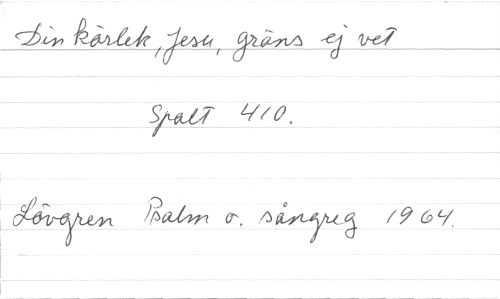 Din kärlek, Jesu, gräns ej vet
Spalt 410.
Lövgren Psalm o. sångreg 1964.